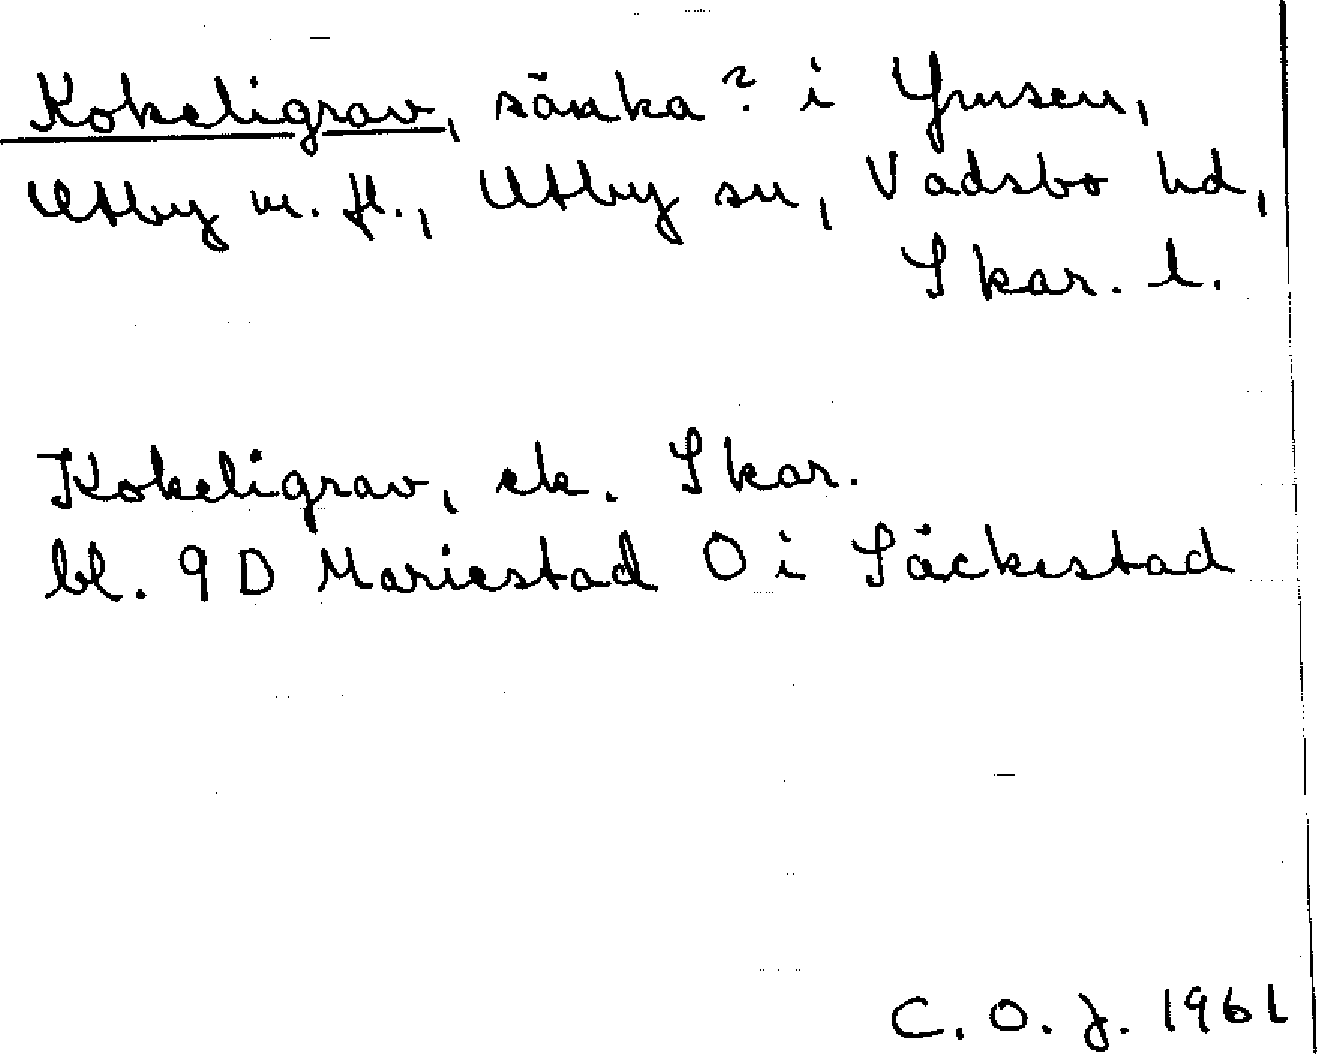 Kokeligrav, sänka? i Ymsen,
Utby m. fl., Utby sn, Vadsbo hd,
Skar. l.
Kokeligrav, ek. Skar.
bl. 9D Mariestad O i Säckestad
C. O. J. 1961